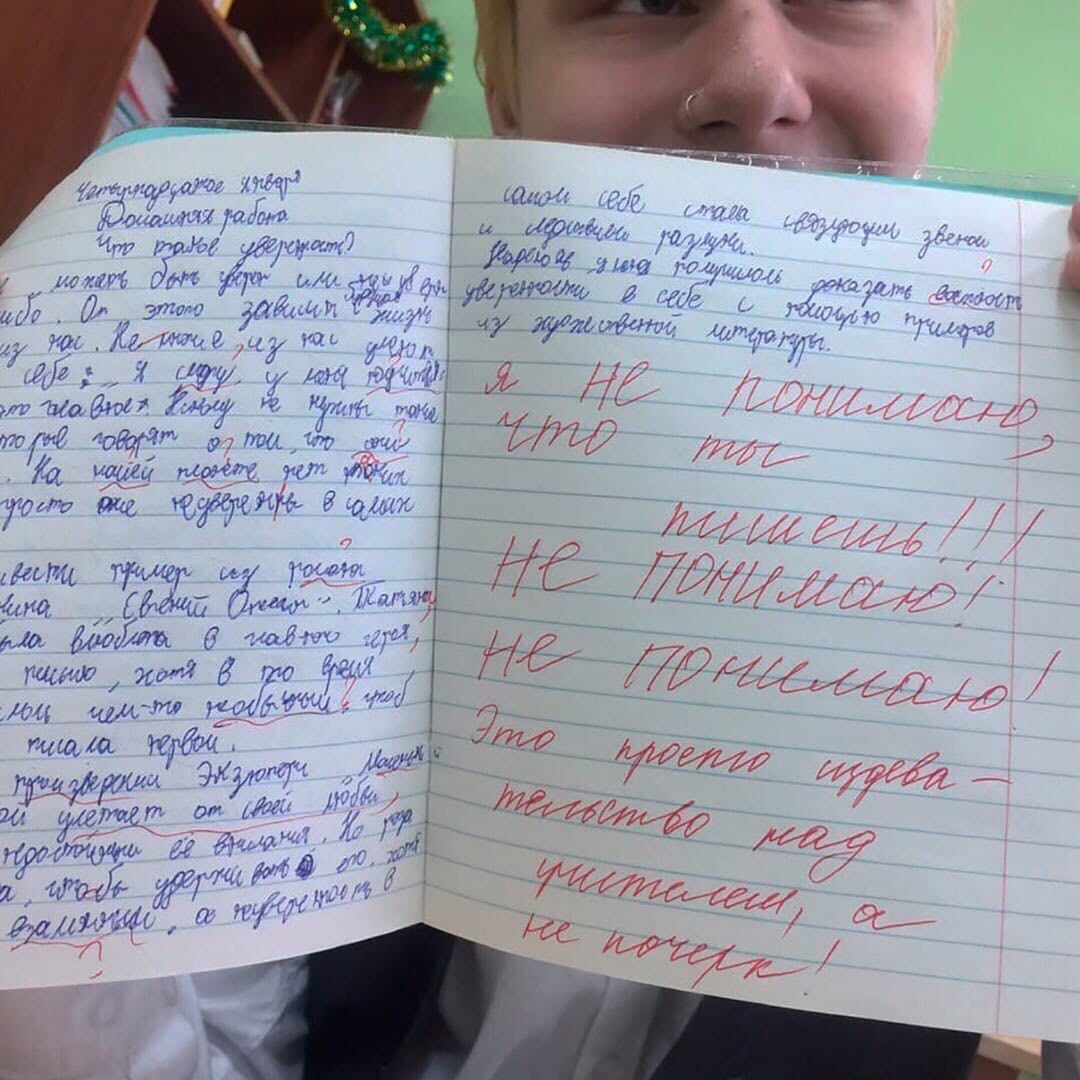 Четырнадцатое января
Домашняя работа
Что такое уверенность?
может быть уверен или
либо. От этого зависит жизнь
из нас. Не многие из нас умеют
себе: „Я смогу, у меня
это главное". Никому не нужны такие
говорят о том, что они
. На нашей планете нет таких
просто они не уверены в самих
пример из романа
„Евгений Онегин". Татьяна
была влюблена в главного героя,
письмо, хотя в то время
чем-то необычным, чтоб
писала первой.
произведении Экзюпери „Маленький
улетает от своей любви,
недостоящим её внимания. Но роза
, чтобы удерживать его, хотя
взаимный, а неуверенность в
самом себе стала связующим звеном
и последствием разлуки.
Надеюсь, у меня получилось доказать важность
уверенности в себе с помощью примеров
из художественной литературы.
я не понимаю,
что ты
пишешь!!!
Не понимаю!
Не понимаю!
Это просто издева-
тельство над
учителем, а
не почерк!